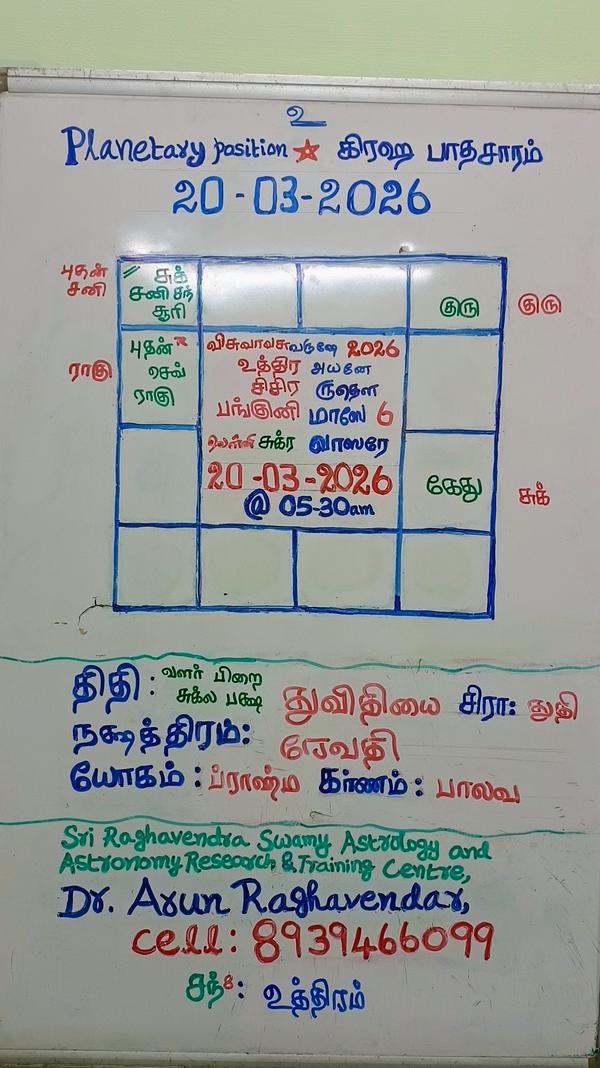 உ
Planetary position ☆ கிரஹ பாதசாரம்
20-03-2026
புதன்
சனி
// சுக்
சனி சந்
சூரி
குரு
குரு
ராகு
புதன் R
செவ்
ராகு
விசுவாவசு வருஷே 2026
உத்திர அயனே
சிசிர ருதௌ
பங்குனி மாஸே 6
வெள்ளி சுக்ர வாஸரே
20-03-2026
@ 05-30am
கேது
சுக்
திதி: வளர் பிறை
சுக்ல பக்ஷ
துவிதியை சிரா: துதி
நக்ஷத்திரம்: ரேவதி
யோகம்: ப்ராஹ்ம கரணம்: பாலவ
Sri Raghavendra Swamy Astrology and
Astronomy, Research & Training Centre,
Dr. Arun Raghavendar,
Cell: 8939466099
சந் 8: உத்திரம்